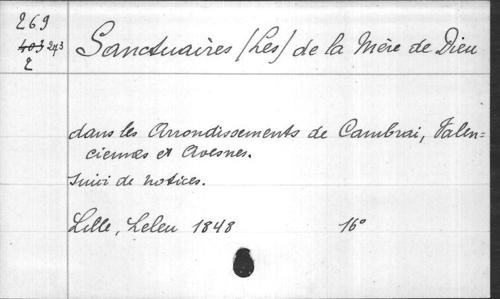 269
403 243
2
Sanctuaires (Les) de la Mère de Dieu
dans les Arrondissements de Cambrai, Valen=
ciennes et Avesnes.
Suivi de notices.
Lille, Leleu 1848 16°